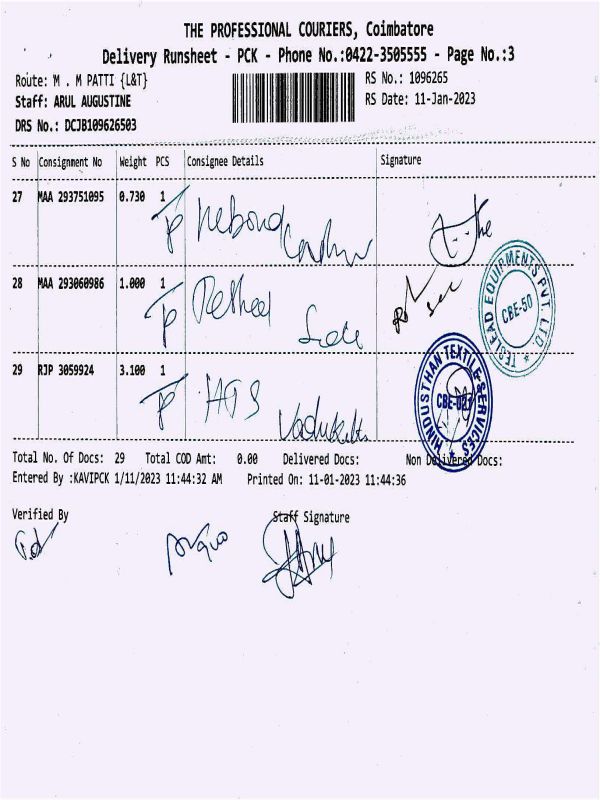 THE PROFESSIONAL COURIERS, Coimbatore
Delivery Runsheet - PCK - Phone No.:0422-3505555 - Page No.:3
Route: M . M PATTI {L&T} RS No.: 1096265
Staff: ARUL AUGUSTINE RS Date: 11-Jan-2023
DRS No.: DCJB109626503
S No Consignment No Weight PCS Consignee Details Signature
27 MAA 293751095 0.730 1
28 MAA 293060986 1.000 1
TESLEAD EQUIPMENTS PVT. LTD. CBE-50
29 RJP 3059924 3.100 1 HTS
HINDUSTHAN TEXTILE SERVICES
Total No. Of Docs: 29 Total COD Amt: 0.00 Delivered Docs: Non Delivered Docs:
Entered By :KAVIPCK 1/11/2023 11:44:32 AM Printed On: 11-01-2023 11:44:36
Verified By Staff Signature